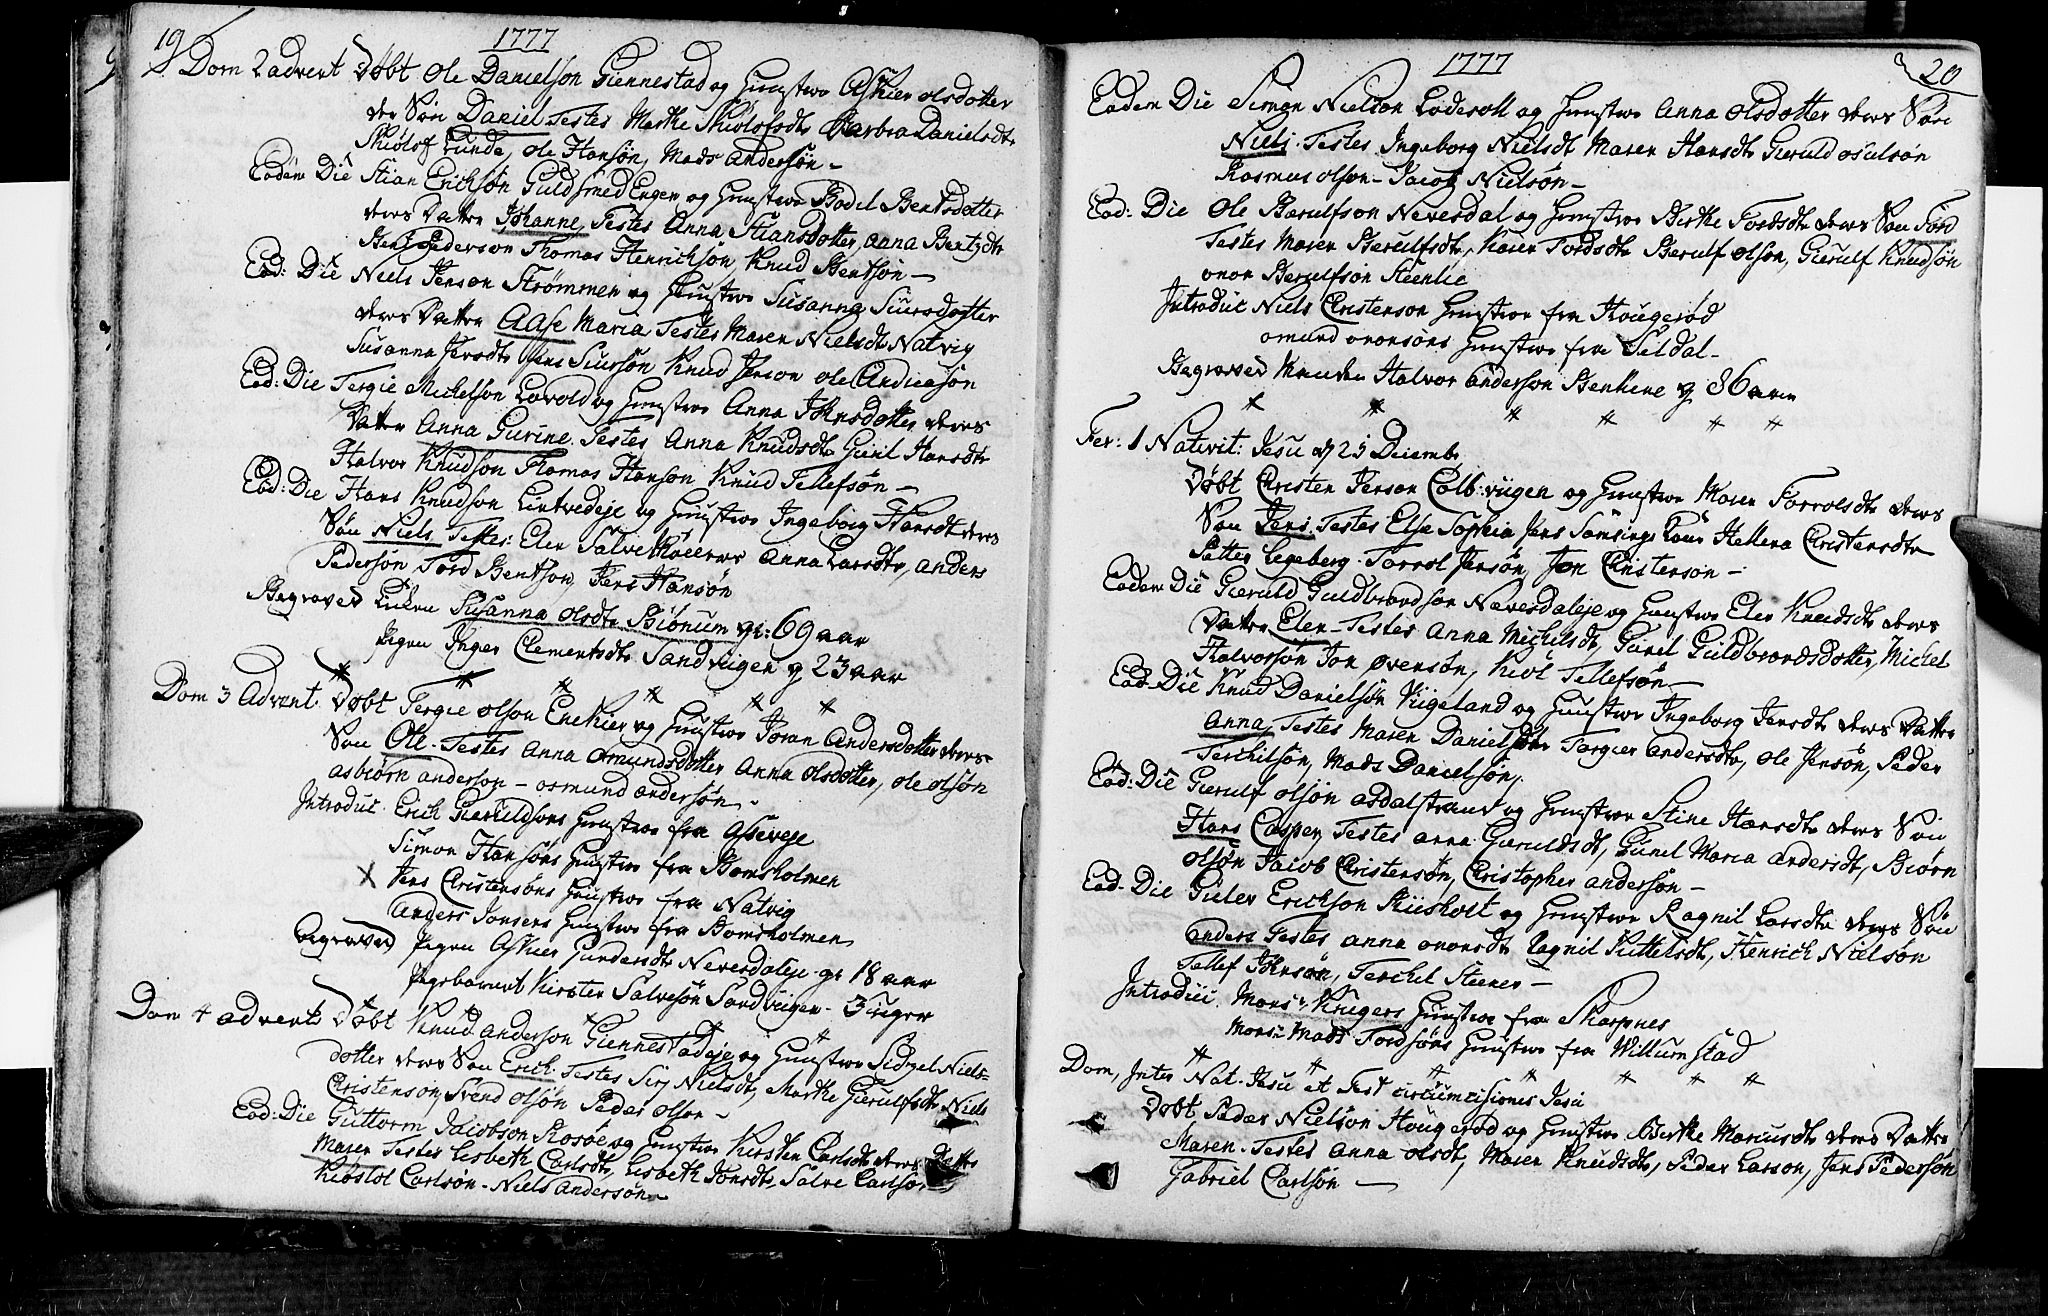 19
1777
Dom 2 advent Døbt Ole Danielson Giennestad og Hustrue Askier olsdotter
der Søn Daniel Testes Marthe Skiolofsdtr Barbra Danielsdtr
Skiølof Lunde, Ole Hansøn, Mads Andersøn -
Eodem Die Stian Erichsøn Guldsmed Engen og Hustrue Bodil Bentsdotter
deres Datter Johanne, Testes Anna Stiansdotter, Anna Bentzdtr
Bent Pederson Thomas Henrichsøn, Knud Bentsøn -
Eod: Die Niels Jenson Strømmen og Hustrue Susanna Siursdotter
deres Datter Aase Maria Testes Maren Nielsdtr Natvig
Susanna Jensdtr Jens Siursøn Knud Jenson Ole Andreasøn
Eod: Die Tergie Michelson Lovold og Hustrue Anna Johnsdotter deres
Datter Anna Gurine. Testes Anna Knudsdtr Guril Hansdtr
Halvor Knudson Thomas Hanson Knud Tellefsøn -
Eod: Die Hans Knudson Lintvedeje og Hustrue Ingeborg Hansdtr deres
Søn Niels Testes: Elen Salve Møllerens Anna Larsdtr, Anders
Pedersøn Tord Bentson, Jens Hansøn
Begraved Enken Susanna Olsdtr Biønum gl: 69 aar
Pigen Inger Clementsdtr Sandviigen g 23 aar
Dom 3 Advent. Døbt Tergie olson Enekier og Hustrue Joran Andersdotter deres
Søn Ole. Testes Anna Omundsdotter Anna Olsdotter, Ole olsøn
asbiørn anderson - osmund andersøn -
Introduc. Erich Gieruldsons Hustrue fra Asseveje
Simon Hansøns Hustrue fra Bomsholmen
x Jens Christensøns Hustrue fra Natvig
Anders Jonsens Hustrue fra Bomsholmen
Begraved Pigen Askier Gundersdtr Neversdaleje gl 18 aar
Pigebarnet Kirsten Salvesøn Sandviigen - 3 uger
Dom 4 advent Døbt Knud anderson Giennestadeje og Hustrue Sidzel Niels-
dotter deres Søn Erich. Testes Siri Nielsdtr, Marthe Gierulfsdtr Niels
Christenson, Svend olsøn Peder olson -
Eod: Die Guttorm Jacobson Kosøe og Hustrue Kirsten Carlsdtr deres Datter
Maren Testes Lisbeth Carlsdtr, Lisbeth Jonsdtr, Salve Carlsøn
Kiøstol Carlsøn - Niels Andersøn -
20
1777
Eodem Die Simon Nielson Lodesoll og Hustrue Anna Olsdotter deres Søn
Niels. Testes Ingeborg Nielsdt Maren Hansdtr Gieruld osulsøn
Rasmus olson - Jacob Nielsøn -
Eod: Die Ole Berulfson Neversdal og Hustrue Berthe Tordsdtr deres Søn Tord
Testes Maren Berulfsdtr, Karen Tordsdtr Berulf olson, Gierulf Knudsøn
onon Berulfsøn Steenlie
Introduc Niels Christenson Hustrue fra Hougerød
omund ononsøns Hustrue fra Seldal -
Begraved Manden Halvor Anderson Benkene g 86 aar
Fer: 1 Nativit: Jesu d 25 Decembr
Døbt Christen Jenson Colbviigen og Hustrue Maren Torrolsdtr deres
Søn Jens. Testes Else Sophia Jens Samsings Kone Hellena Christensdtr
Petter Segeberg - Torrol Jensøn, Jon Christenson -
Eodem Die Gieruld Guldbrandson Neversdaleje og Hustrue Elen Knudsdtr deres
Datter Elen - Testes Anna Michelsdt, Gunel Guldbrandsdotter, Michel
Halvorsøn Jon ovensøn, Kiol Tellefsøn -
Eod: Die Knud Danielsøn Viigeland og Hustrue Ingeborg Jensdtr deres Datter
Anna, Testes Maren Danielsdtr Torgier Andersdtr, Ole Jensøn, Peder
Terchilsøn, Mads Danielsøn,
Eod: Die Gierulf olsøn asdalstrand og Hustrue Stine Hansdtr deres Søn
Hans Casper, Testes anna Gieruldsdt, Gunel Maria Andersdt, Biørn
olsøn Jacob Christensøn, Christopher andersøn -
Eod. Die Gulev Erichson Riisholt og Hustrue Ragnil Larsdtr deres Søn
anders Testes anna ononsdt Ragnil Kittelsdt, Henrich Nielsøn
Tellef Johnsøn, Terchel Steener -
Introduc. Mons: Krugers Hustrue fra Skarpnes
Mons: Mads Tordsøns Hustrue fra Willumstad
Dom, Inter Nat. Jesu et Fest circumcisiones Jesu
Døbt Peder Nielson Hougerød og Hustrue Berthe Marcusdt deres Datter
Maren. Testes Anna olsdt, Maren Knudsdtr, Peder Larson, Jens Pedersøn
Gabriel Carlsøn -